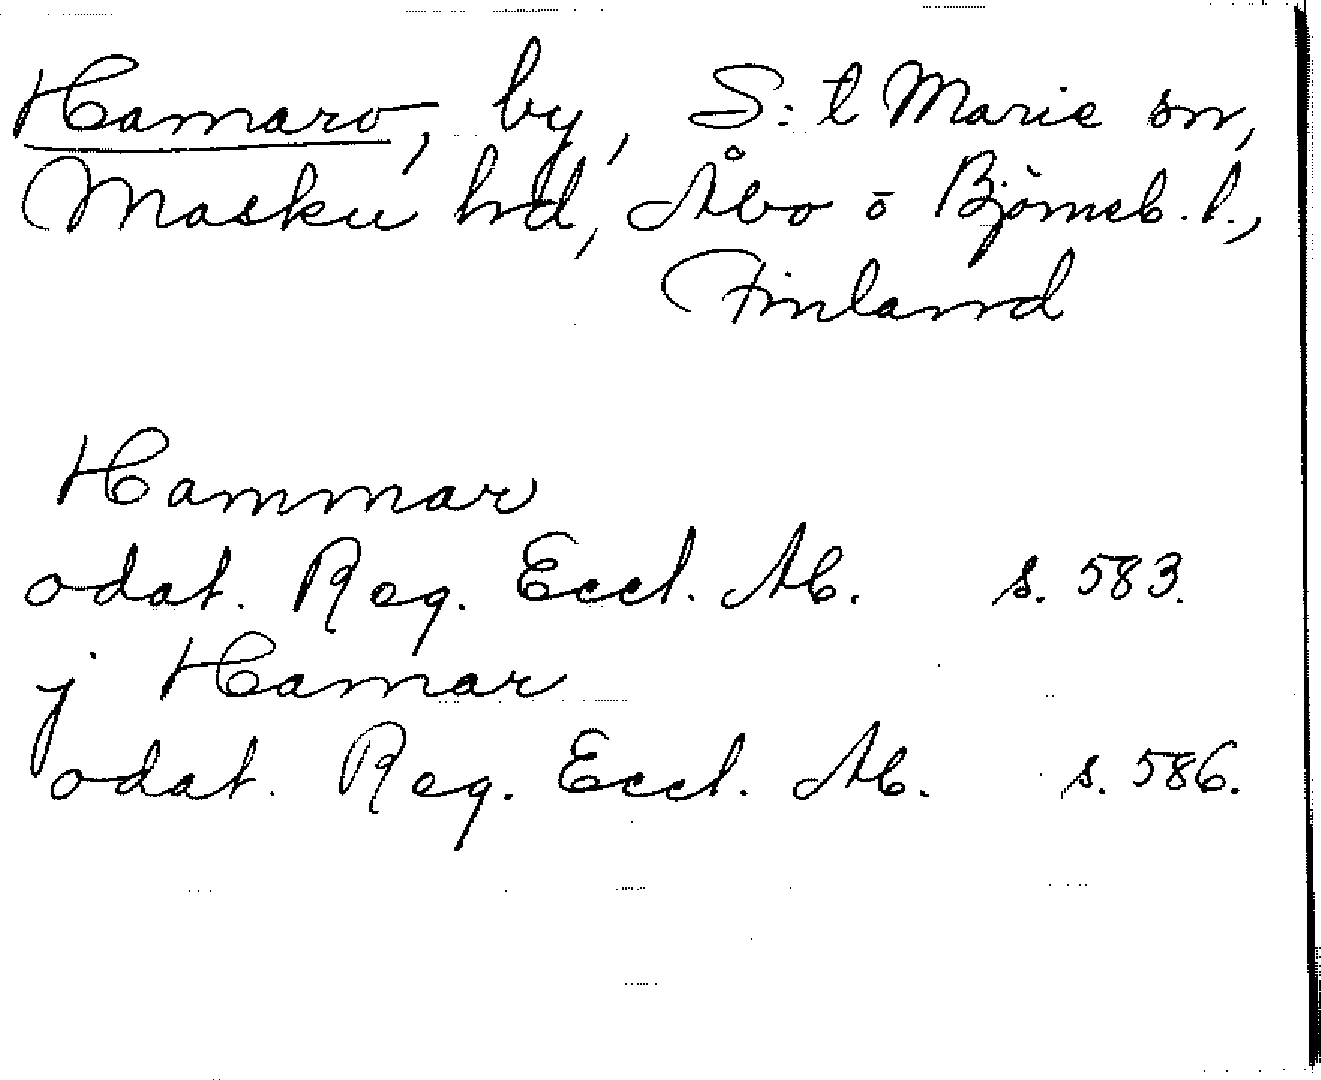 Hamaro, by, S:t Marie sn,
Masku hrd, Åbo o Björneb. l.,
Finland
Hammar
odat. Reg. Eccl. Ab. s. 583.
j Hamar
odat. Reg. Eccl. Ab. s. 586.